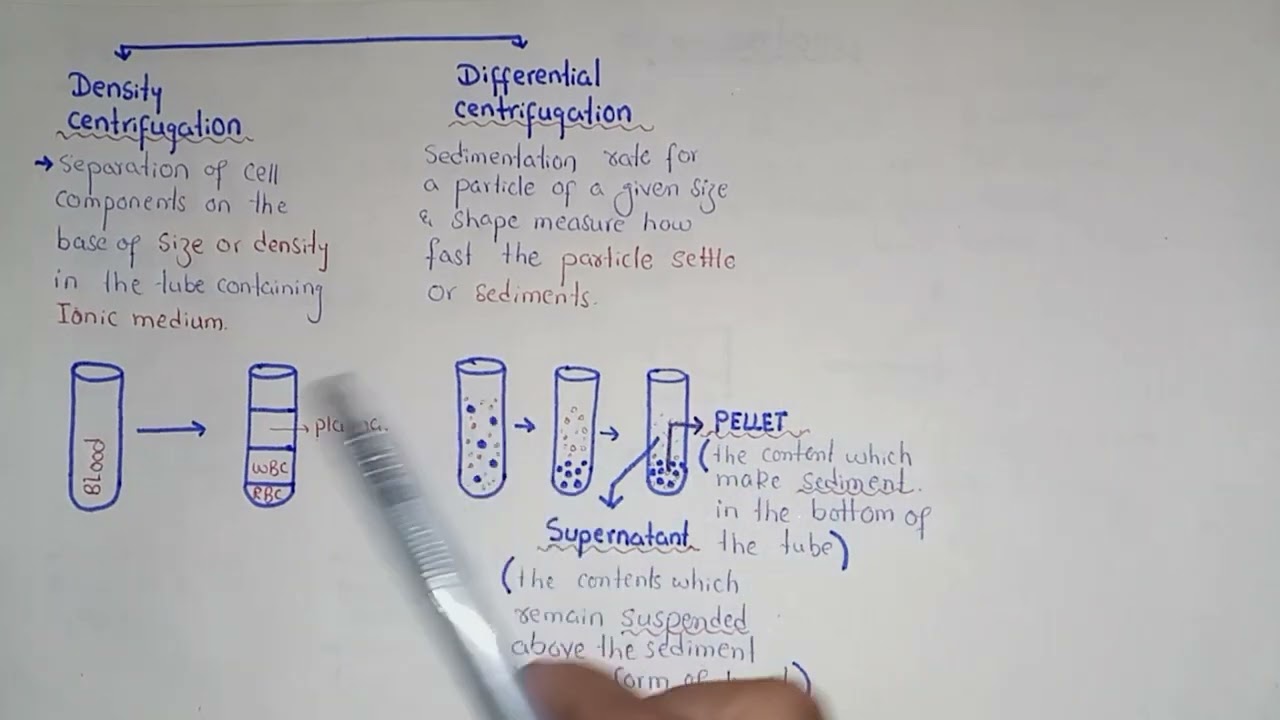 Density
centrifugation
→ Separation of cell
components on the
base of size or density
in the tube containing
Ionic medium.
Blood
WBC
RBC
Differential
centrifugation
Sedimentation rate for
a particle of a given size
& shape measure how
fast the particle settle
or sediments.
PELLET
(the content which
make sediment.
in the bottom of
the tube)
Supernatant
(the contents which
remain suspended
above the sediment
form of